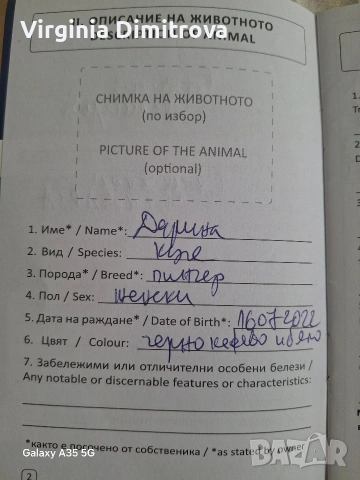 Virginia Dimitrova
II. ОПИСАНИЕ НА ЖИВОТНОТО
DESCRIPTION OF ANIMAL
СНИМКА НА ЖИВОТНОТО
(по избор)
PICTURE OF THE ANIMAL
(optional)
1. Име* / Name*: Дарина
2. Вид / Species: куче
3. Порода* / Breed*: пинчер
4. Пол / Sex: женски
5. Дата на раждане* / Date of Birth*: 16.07.2022
6. Цвят / Colour: черно кафяво и бяло
7. Забележими или отличителни особени белези /
Any notable or discernable features or characteristics:
*както е посочено от собственика / *as stated by owner
Galaxy A35 5G
2
BAZAR